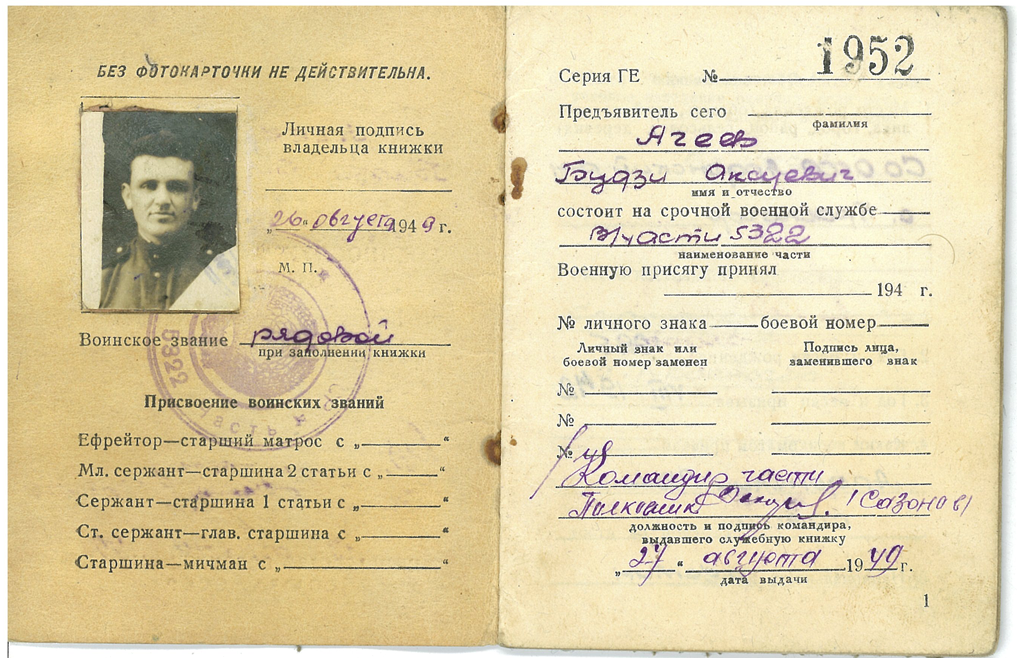 БЕЗ ФОТОКАРТОЧКИ НЕ ДЕЙСТВИТЕЛЬНА.
Личная подпись
владельца книжки
„26“ августа 1949 г.
М. П.
Воинское звание рядовой
при заполнении книжки
5322
часть
Присвоение воинских званий
Ефрейтор—старший матрос с „ “
Мл. сержант—старшина 2 статьи с „ “
Сержант—старшина 1 статьи с „ “
Ст. сержант—глав. старшина с „ “
Старшина—мичман с „ “
Серия ГЕ № 1952
Предъявитель сего
фамилия
Агеев
Будзи
имя и отчество
состоит на срочной военной службе
В/части 5322
наименование части
Военную присягу принял
194 г.
№ личного знака боевой номер
Личный знак или Подпись лица,
боевой номер заменен заменившего знак
№
№
№
Командир части
Полковник (Сазонов)
должность и подпись командира,
выдавшего служебную книжку
„27“ августа 1949 г.
дата выдачи
1